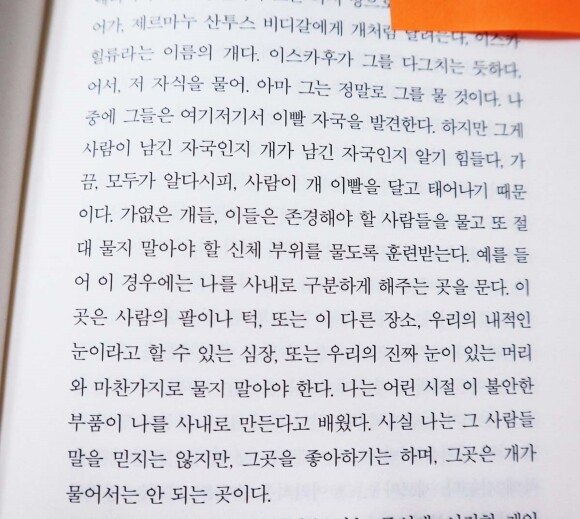 어가, 제르마누 산투스 비디갈에게 개처럼 달려든다, 이스카
힐류라는 이름의 개다. 이스카후가 그를 다그치는 듯하다,
어서, 저 자식을 물어. 아마 그는 정말로 그를 물 것이다. 나
중에 그들은 여기저기서 이빨 자국을 발견한다. 하지만 그게
사람이 남긴 자국인지 개가 남긴 자국인지 알기 힘들다, 가
끔, 모두가 알다시피, 사람이 개 이빨을 달고 태어나기 때문
이다. 가엾은 개들, 이들은 존경해야 할 사람들을 물고 또 절
대 물지 말아야 할 신체 부위를 물도록 훈련받는다. 예를 들
어 이 경우에는 나를 사내로 구분하게 해주는 곳을 문다. 이
곳은 사람의 팔이나 턱, 또는 이 다른 장소, 우리의 내적인
눈이라고 할 수 있는 심장, 또는 우리의 진짜 눈이 있는 머리
와 마찬가지로 물지 말아야 한다. 나는 어린 시절 이 불안한
부품이 나를 사내로 만든다고 배웠다. 사실 나는 그 사람들
말을 믿지는 않지만, 그곳을 좋아하기는 하며, 그곳은 개가
물어서는 안 되는 곳이다.